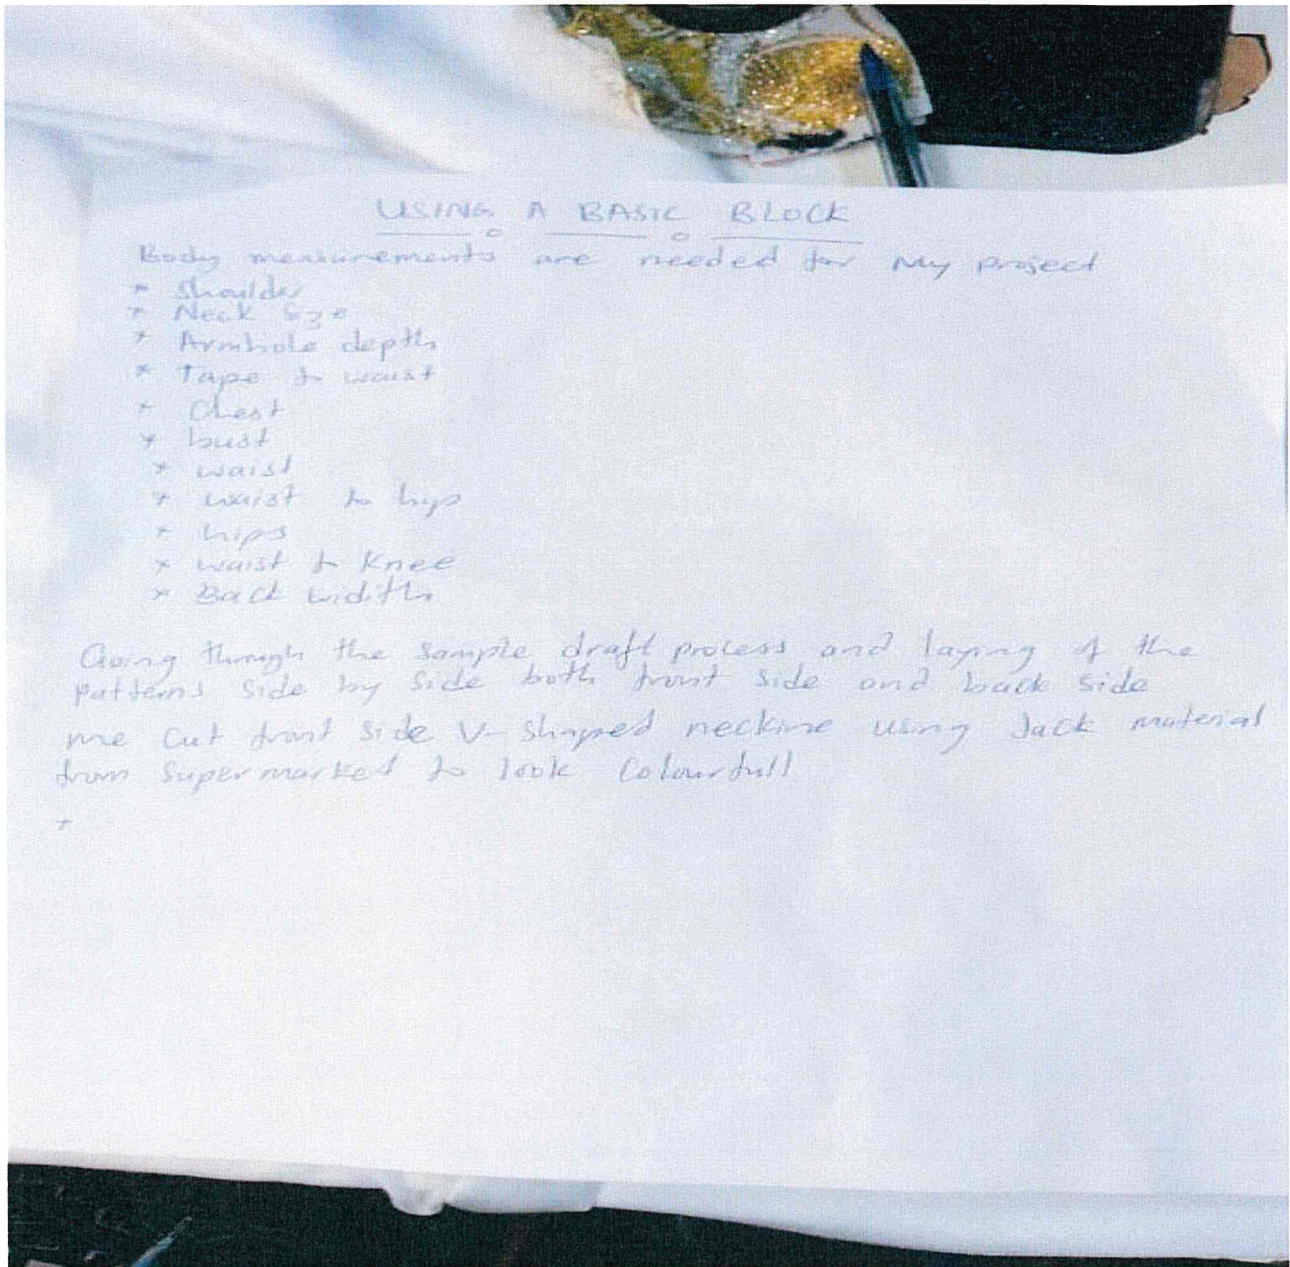 USING A BASIC BLOCK
Body measurements are needed for My project
* Shoulder
* Neck size
* Armhole depth
* Tape to waist
* Chest
* bust
* waist
* waist to hips
* hips
* waist to Knee
* Back widths
Going through the sample draft process and laying of the
patterns side by side both front side and back side
me cut front side V-shaped neckine using Jack material
from Supermarked to look Colourfull